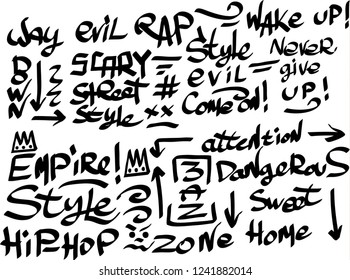 way evil RAP WAKE UP!
DOWN SCARY= Style Never
Street # evil= give
Style xx Come on! UP!
attention
EMPIRE! MAN DangerouS
Style Sweet
HIPHOP ZONE Home
1241882014